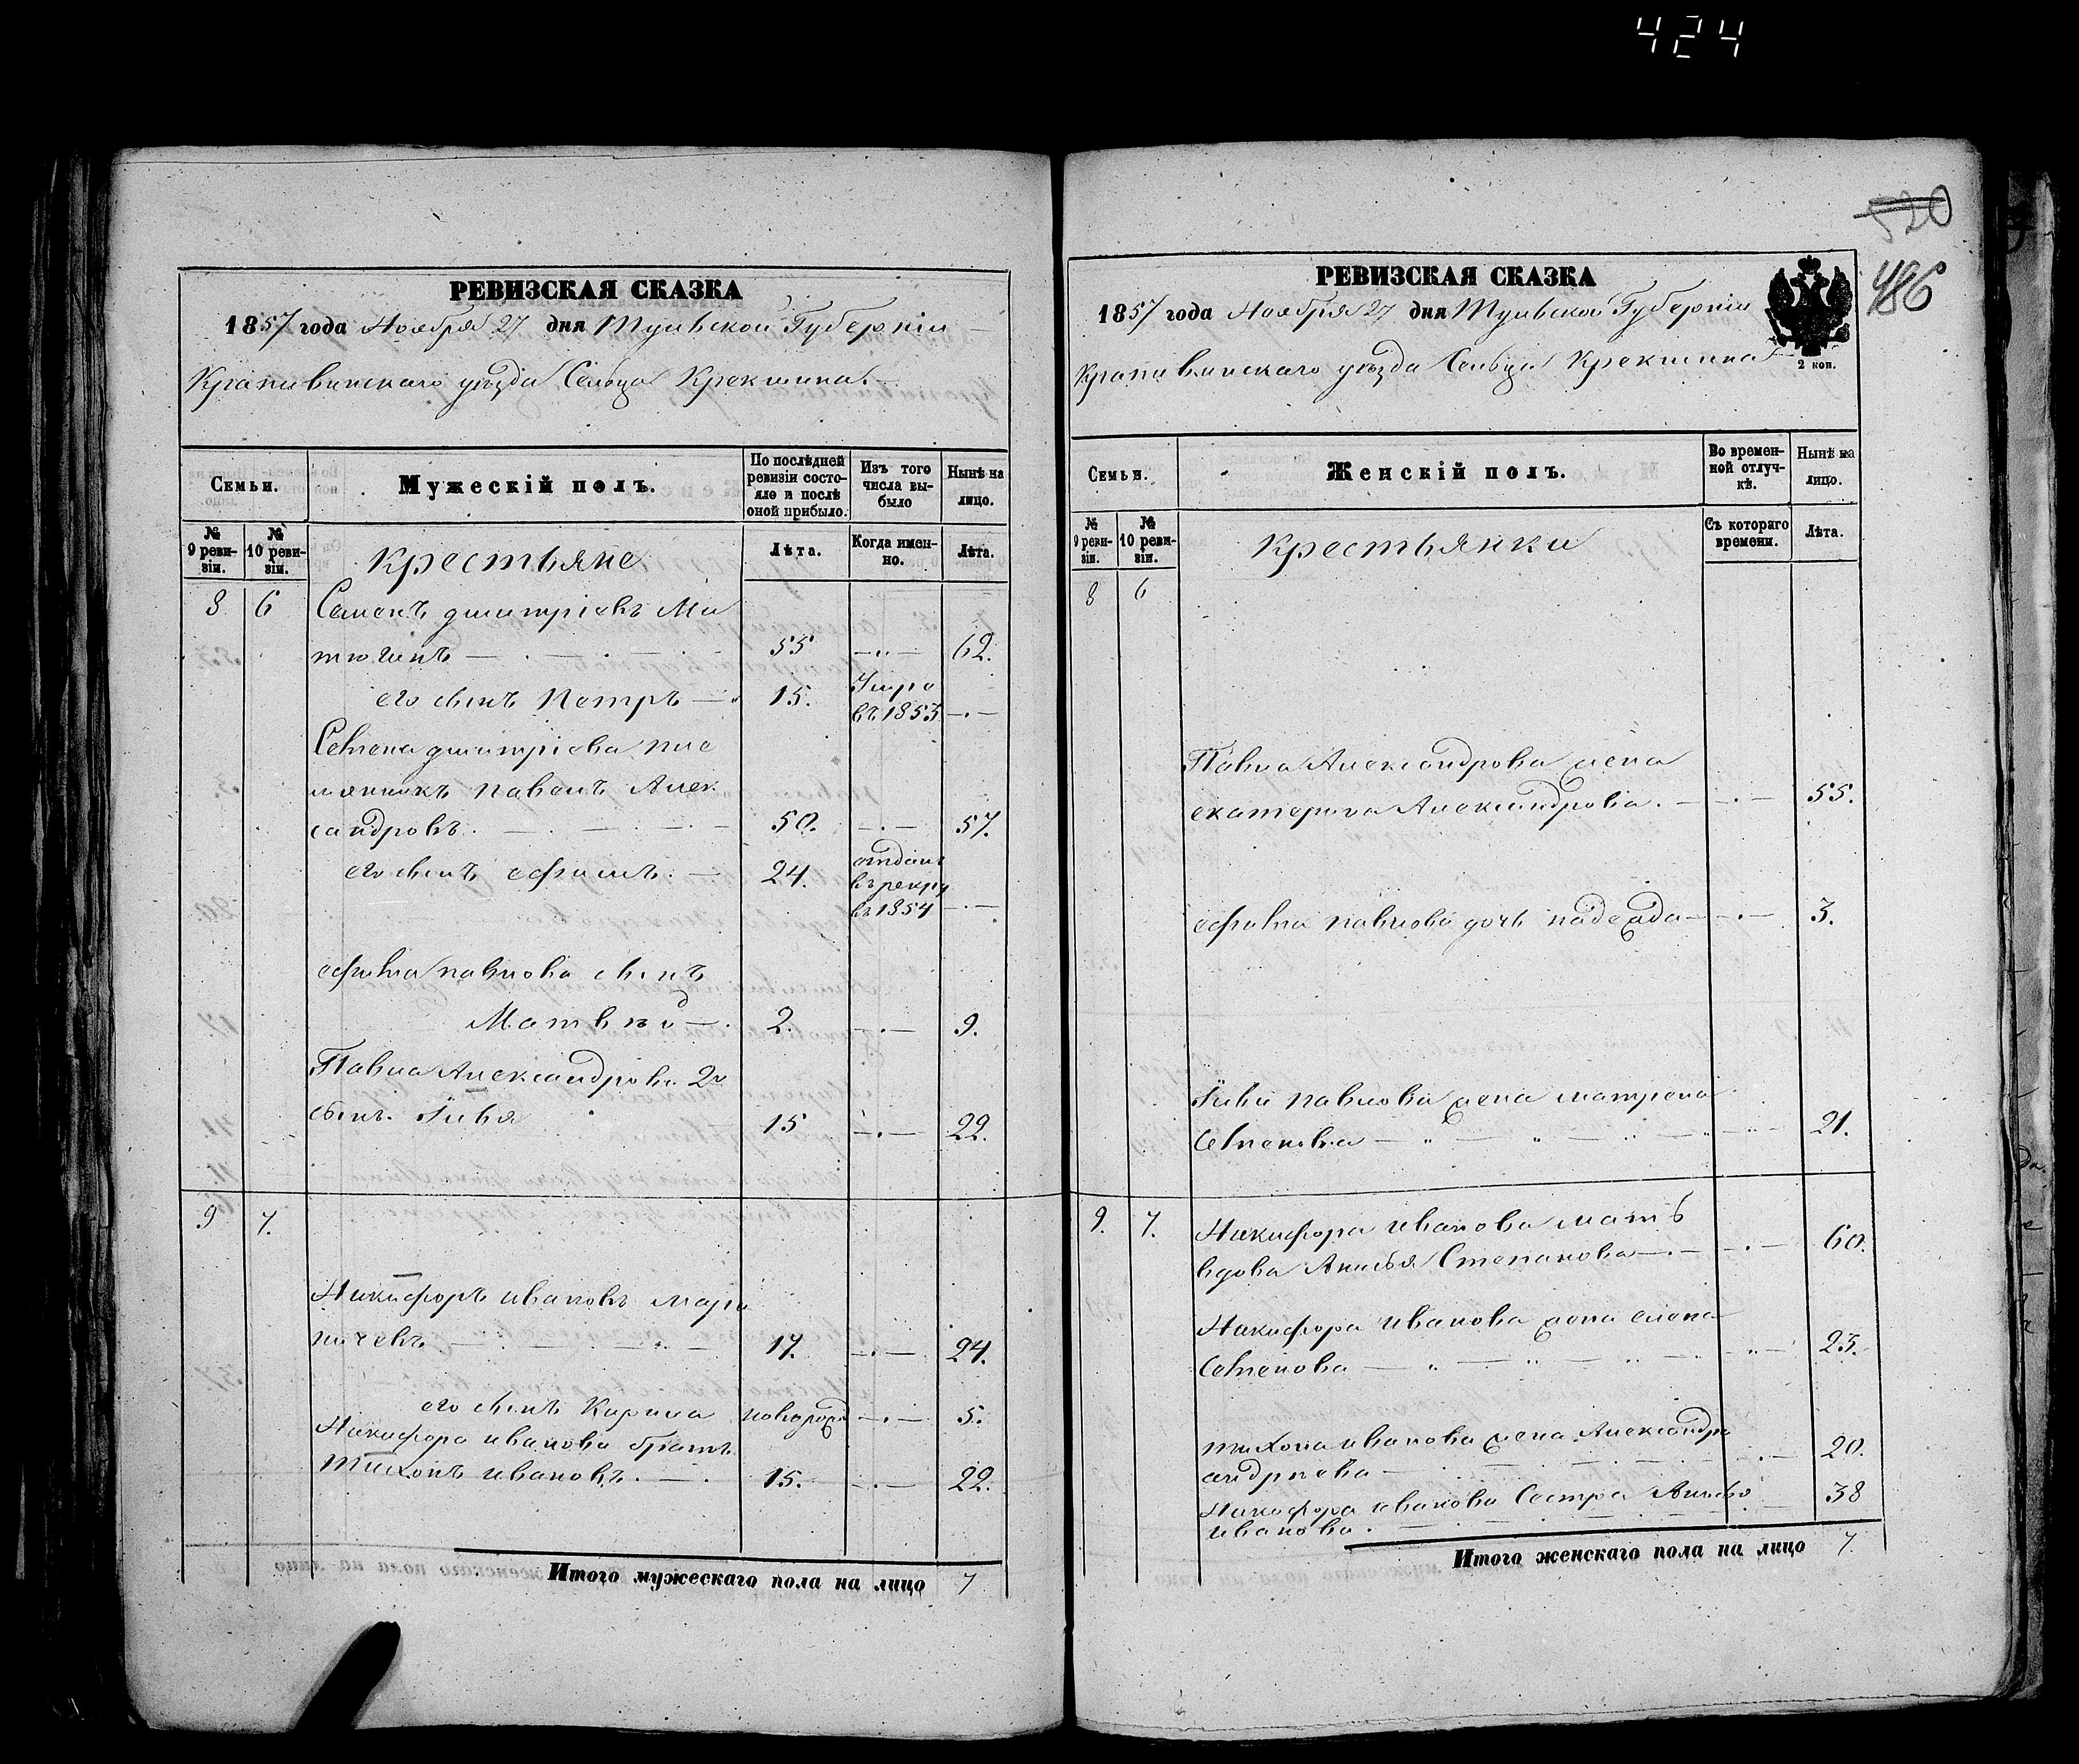 424
РЕВИЗСКАЯ СКАЗКА
1857 года Ноября 27 дня Тульской Губернiи
Крапивинскаго уѣзда Сельца Крекшина.
Семьи.
Мужескiй полъ.
По послѣдней ревизiи состояло и послѣ оной прибыло.
Изъ того числа выбыло
Нынѣ на лицо.
№ 9 ревизiи.
№ 10 ревизiи.
Крестьяне
Лѣта.
Когда именно.
Лѣта.
8 6 Семенъ дмитрiевъ Ми
тюгинъ 55 62.
его сынъ Петръ 15. Умре
въ 1853
Семена дмитрiева пле
мянникъ павелъ Алек
сандровъ. 50. 57.
его сынъ ефимъ. 24. отданъ
въ рекру
въ 1854
ефима павлова сынъ
Матвѣй 2. 9.
Павла Александрова 2й
сынъ. 15 22.
9 7.
Никифоръ ивановъ
17. 24.
его сынъ Кирила новорож 5.
Никифора иванова братъ
тихонъ ивановъ. 15. 22.
Итого мужескаго пола на лицо 7
530
486
РЕВИЗСКАЯ СКАЗКА
1857 года Ноября 27 дня Тульской Губернiи
Крапивинскаго уѣзда Сельца Крекшина
2 коп.
Семьи.
Женскiй полъ.
Во временной отлучкѣ.
Нынѣ на лицо.
№ 9 ревизiи.
№ 10 ревизiи.
Крестьянки
Съ котораго времени.
Лѣта.
8 6
Павла Александрова жена
екатерина Александрова. 55.
ефима павлова дочь надежда 3.
павлова жена матрена
семенова 21.
9. 7. Никифора иванова мать
вдова Степанова 60.
Никифора иванова жена елена
семенова 23.
тихона иванова жена Александра
андреева 20.
Никифора иванова Сестра 38
иванова.
Итого женскаго пола на лицо 7